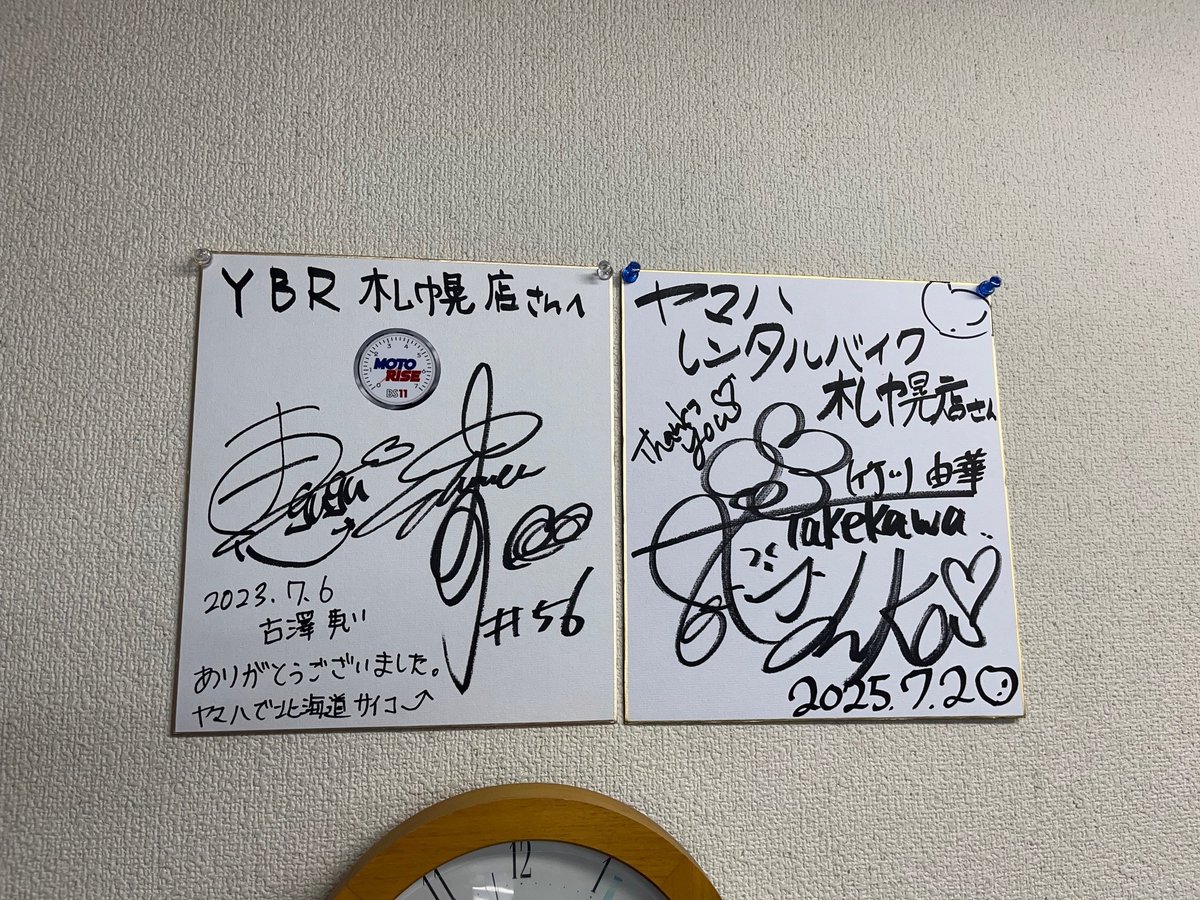 YBR 札幌店さんへ
MOTO
RISE
BS11
2023.7.6
古澤 恵
#56
ありがとうございました。
ヤマハで北海道サイコー
ヤマハ
レンタルバイク
札幌店さん
Thank
you
竹川 由華
Takekawa
2025.7.20
11 12 1